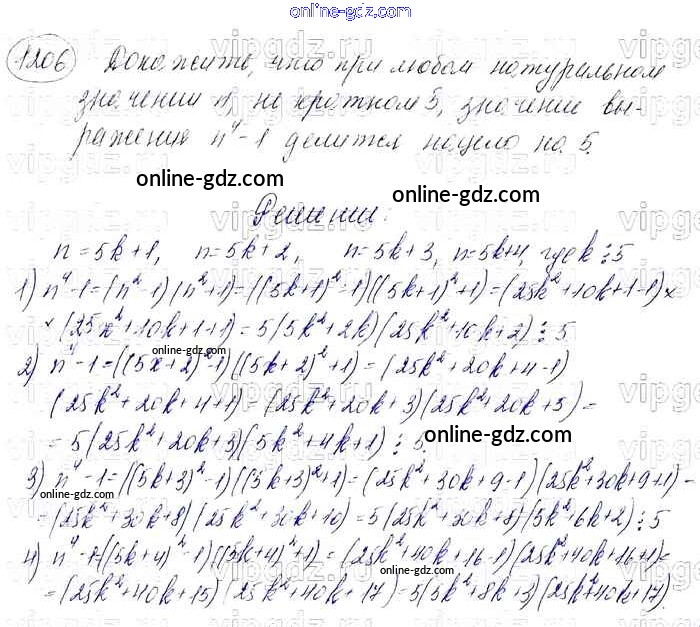 online-gdz.com
1206 Докажите, что при любом натуральном
значении n, не кратном 5, значение вы-
ражения n⁴-1 делится нацело на 5.
online-gdz.com online-gdz.com
Решение:
n=5k+1, n=5k+2, n=5k+3, n=5k+4, где k⋮5
1) n⁴-1=(n²-1)(n²+1)=((5k+1)²-1)((5k+1)²+1)=(25k²+10k+1-1)×
×(25x²+10k+1+1)=5(5k²+2k)(25k²+10k+2)⋮5
online-gdz.com
2) n⁴-1=((5x+2)²-1)((5k+2)²+1)=(25k²+20k+4-1)
online-gdz.com
(25k²+20k+4+1)=(25k²+20k+3)(25k²+20k+5)=
=5(25k²+20k+3)(5k²+4k+1)⋮5.
online-gdz.com
3) n⁴-1=((5k+3)²-1)((5k+3)²+1)=(25k²+30k+9-1)(25k²+30k+9+1)=
online-gdz.com
=(25k²+30k+8)(25k²+30k+10)=5(25k²+30k+8)(5k²+6k+2)⋮5
4) n⁴-1=((5k+4)²-1)((5k+4)²+1)=(25k²+40k+16-1)(25k²+40k+16+1)=
online-gdz.com
=(25k²+40k+15)(25k²+40k+17)=5(5k²+8k+3)(25k²+40k+17).
online-gdz.com online-gdz.com